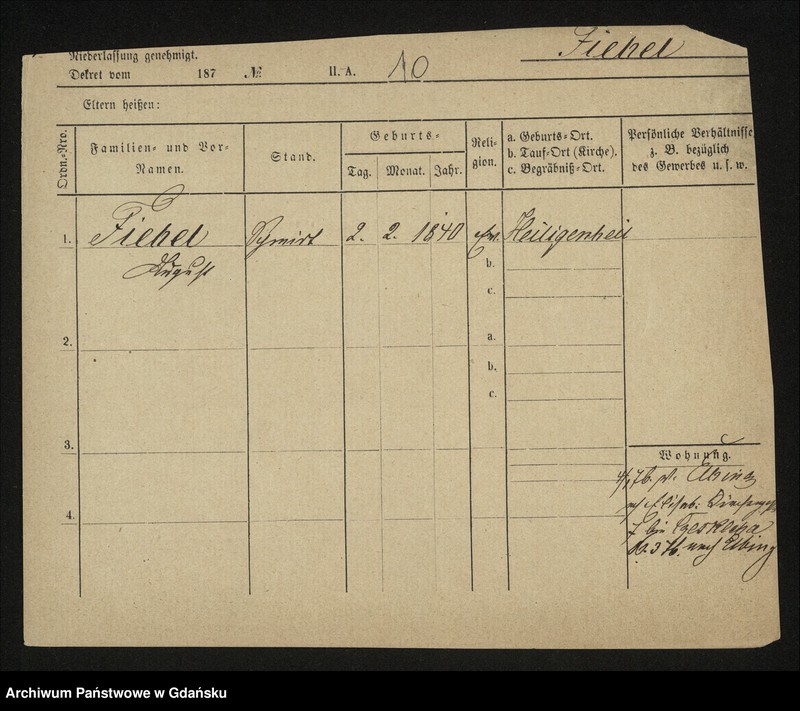 Niederlassung genehmigt.
Fiehel
Dekret vom 187 № II. A. 10
Eltern heißen:
Ordn.-Nro.
Familien- und Vor-
Namen.
Stand.
Geburts-
Tag. Monat. Jahr.
Reli-
gion.
a. Geburts-Ort.
b. Tauf-Ort (Kirche).
c. Begräbniß-Ort.
Persönliche Verhältnisse
z. B. bezüglich
des Gewerbes u. s. w.
1. Fiehel Schmidt 2. 2. 1840 ev. Heiligenbeil
August
b.
c.
2.
a.
b.
c.
3.
Wohnung.
4/1 76. v. Elbing
n/ Elisab: Kircheng
7 bei
3 76. nach Elbing
4.
Archiwum Państwowe w Gdańsku